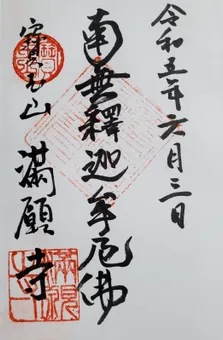 令和五年六月三日
南無釋迦牟尼佛
満願寺